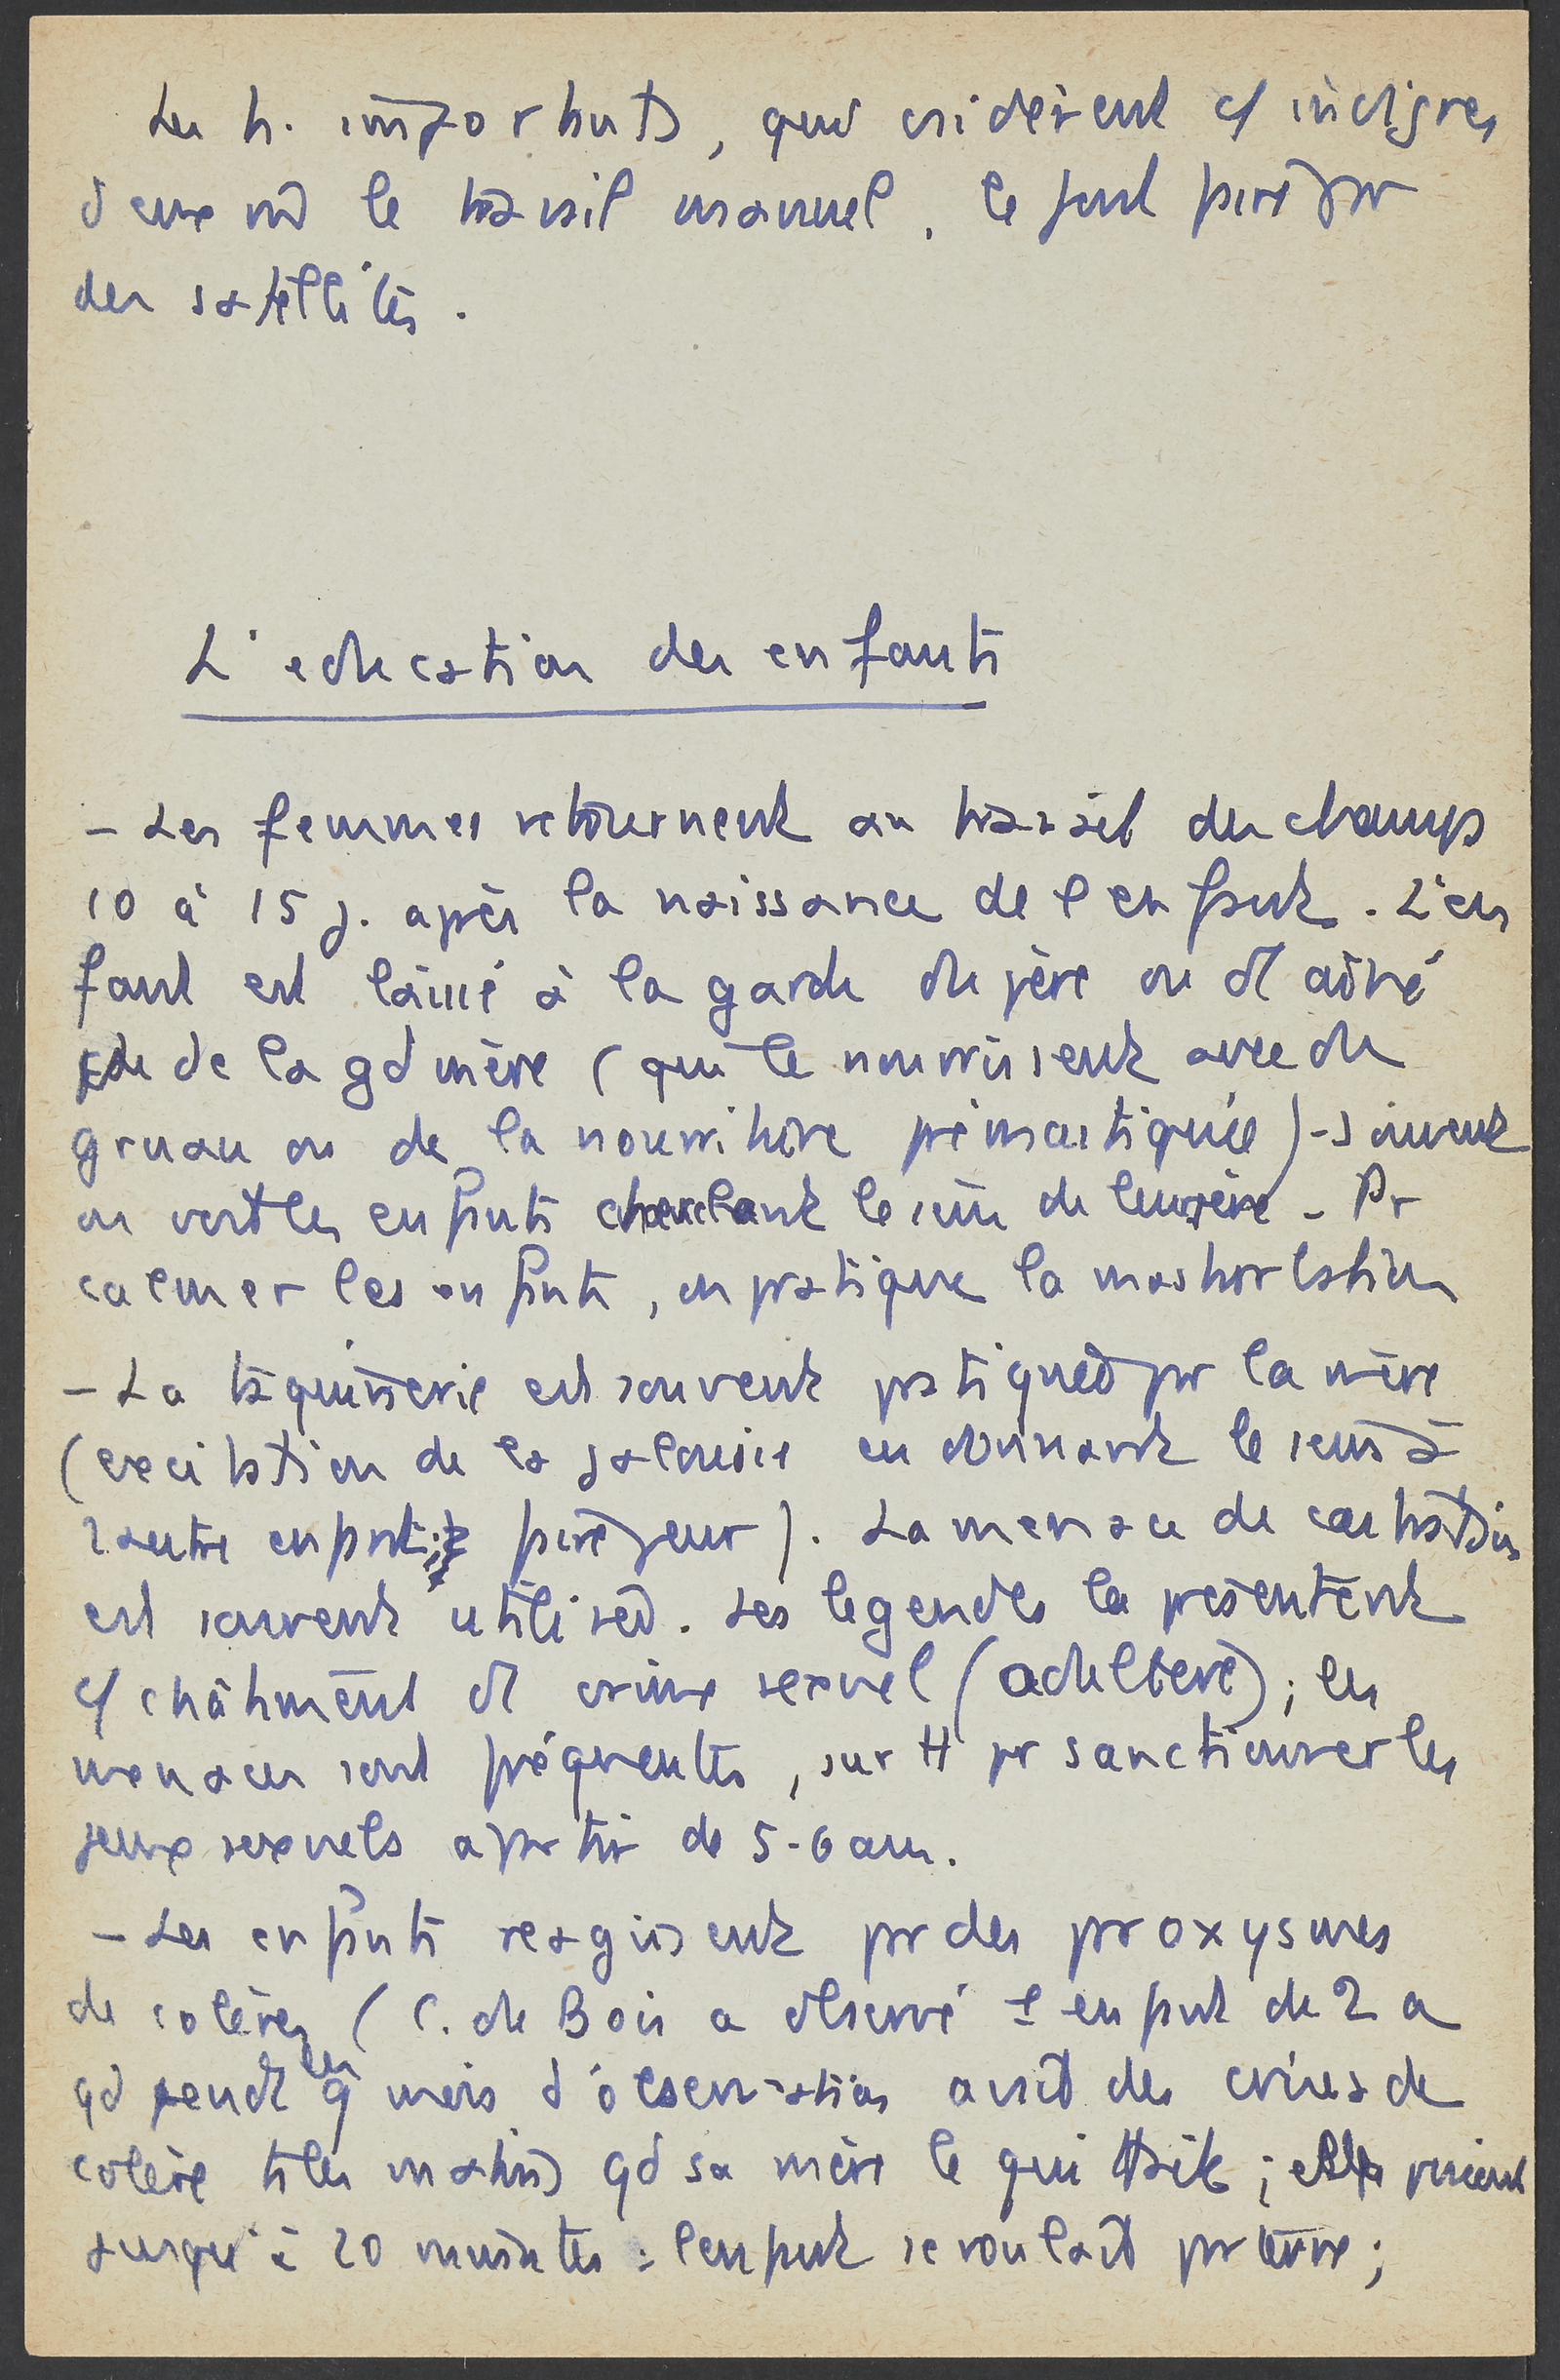 Les h. importants, qui considèrent c/ indignes
d'eux mê le travail manuel, le font faire par
des satellites.
L'education des enfants
- Les femmes retournent au travail des champs
10 à 15 j. après la naissance de l'enfant. L'en
fant est laissé à la garde du père ou d'1 aîné
de la gd mère (qui le nourrissent avec du
gruau ou de la nourriture prémastiquée) - souvent
on voit les enfants cherchant le sein de leur père - Pr
calmer les enfants, on pratique la masturbation
- La taquinerie est souvent pratiquée par la mère
(excitation de la jalousie en donnant le sein à
1 autre enfant; faire peur). La menace de castration
est souvent utilisée. Les legendes la présentent
c/ châtiment d'1 crime sexuel (adultère); les
menaces sont fréquentes, surtt pr sanctionner les
jeux sexuels à partir de 5-6 ans.
- Les enfants réagissent par des paroxysmes
de colères (C. du Bois a observé 1 enfant de 2 a
qd pendt les 9 mois d'observation avait des crises de
colère ts les matins qd sa mère le quittait;
jusqu'à 20 minutes : l'enfant se roulait par terre;